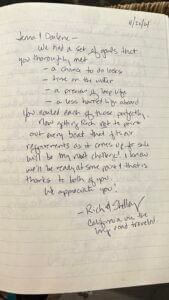 11/20/21
Jenna & Darlene —
We had a set of goals that
you thoroughly met
— a chance to do locks
— time on the water
— a preview of loop life
— a less harried life aboard
You nailed each of those perfectly.
Now getting Rich not to price
out every boat that fits our
requirements as it comes up for sale
will be my next challenge! I know
we'll be ready at some point & that is
thanks to both of you.
We appreciate you!
— Rich &
California via the
long road traveled